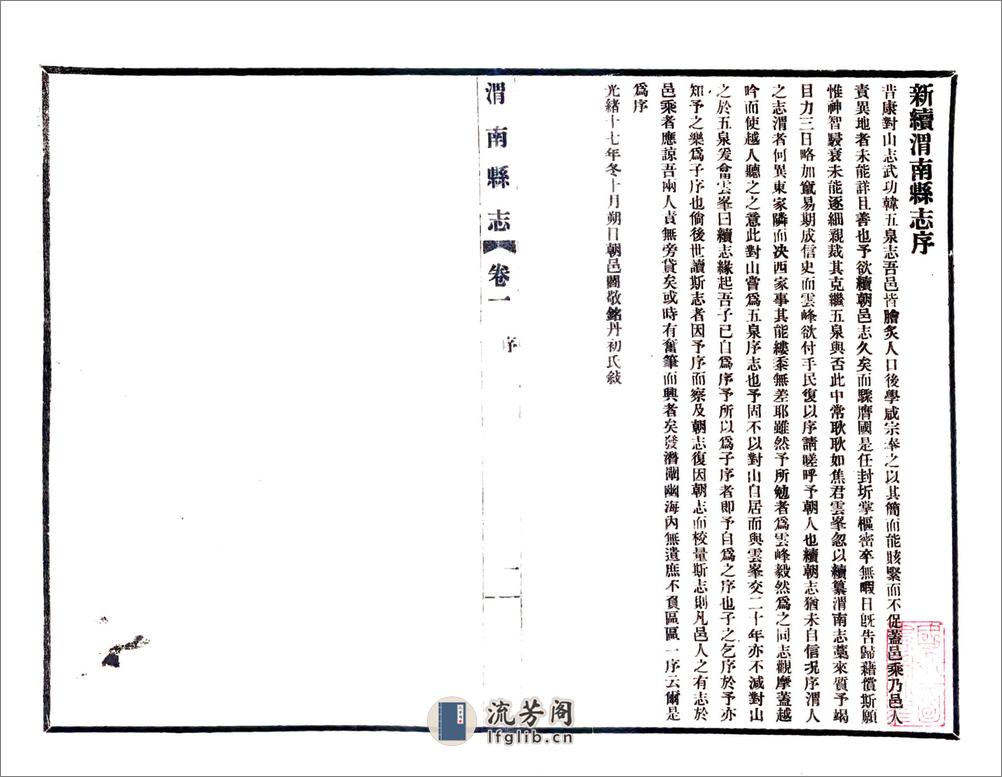 新續渭南縣志序
昔康對山志武功韓五泉志吾邑皆膾炙人口後學咸宗奉之以其簡而能賅緊而不促蓋邑乘乃邑人
責異地者未能詳且善也予欲續朝邑志久矣而驟膺國是任封圻掌樞密卒無暇日旣告歸藉償斯願
惟神智衰未能逐細親裁其克繼五泉與否此中常耿耿如焦君雲峯忽以續纂渭南志藁來質予竭
目力三日略加竄易期成信史而雲峰欲付手民復以序請嗟呼予朝人也續朝志猶未自信况序渭人
之志渭者何異東家隣而决西家事其能縷黍無差耶雖然予所勉者爲雲峰毅然爲之同志觀摩蓋越
吟而使越人聽之之意此對山嘗爲五泉序志也予固不以對山自居而與雲峯交二十年亦不減對山
之於五泉爰會雲峯曰續志緣起吾子已自爲序予所以爲子序者即予自爲之序也子之乞序於予亦
知予之樂爲子序也倘後世讀斯志者因予序而察及朝志復因朝志而校量斯志則凡邑人之有志於
邑乘者應諒吾兩人責無旁貸矣或時有奮筆而興者矣發潛闡幽海內無遺庶不負區區一序云爾是
爲序
光緒十七年冬十月朔日朝邑閻敬銘丹初氏敍
渭南縣志
卷一
序
一
流芳阁
lfglib.cn